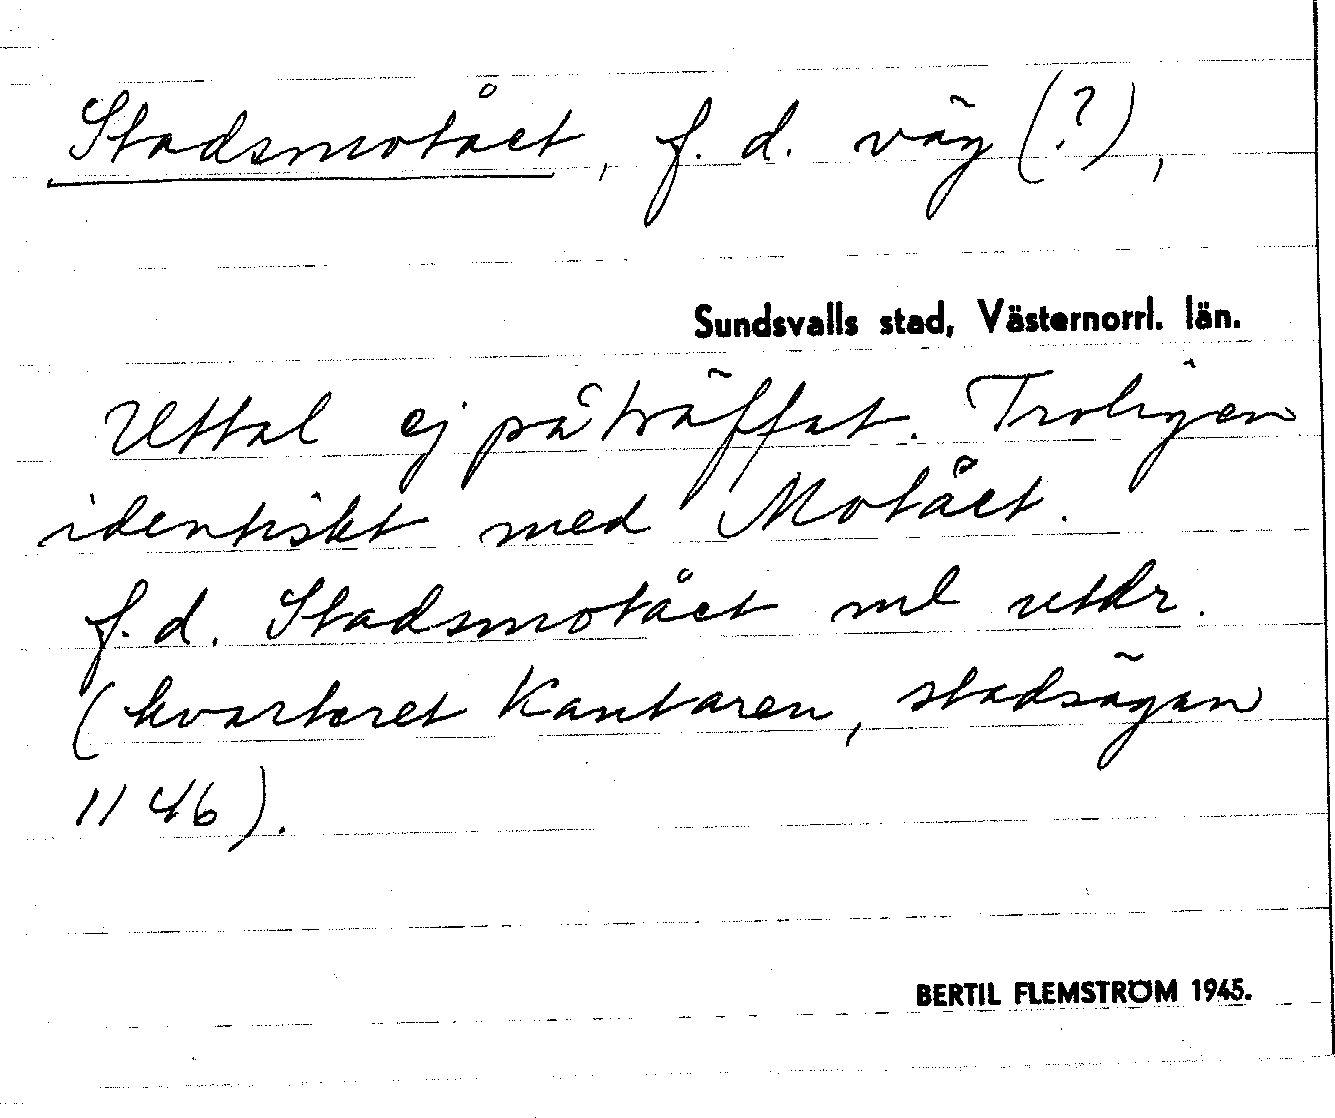 Stadsmotået, f. d. väg (?),
Sundsvalls stad, Västernorrl. län.
Uttal ej påträffat. Troligen
identiskt med Motået.
f. d. Stadsmotået nel utdr.
(kvarteret Kantaren, stadsägan
1146).
BERTIL FLEMSTRÖM 1945.